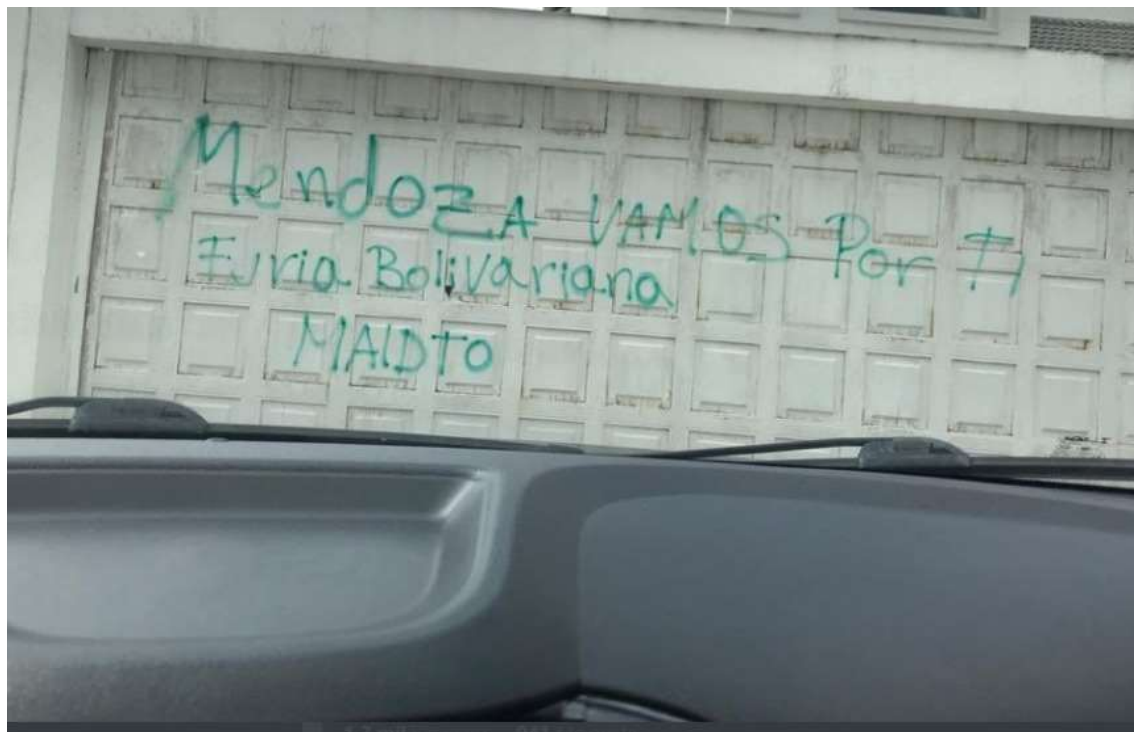 Mendoza VAMOS Por Ti
Furia Bolivariana
MALDTO